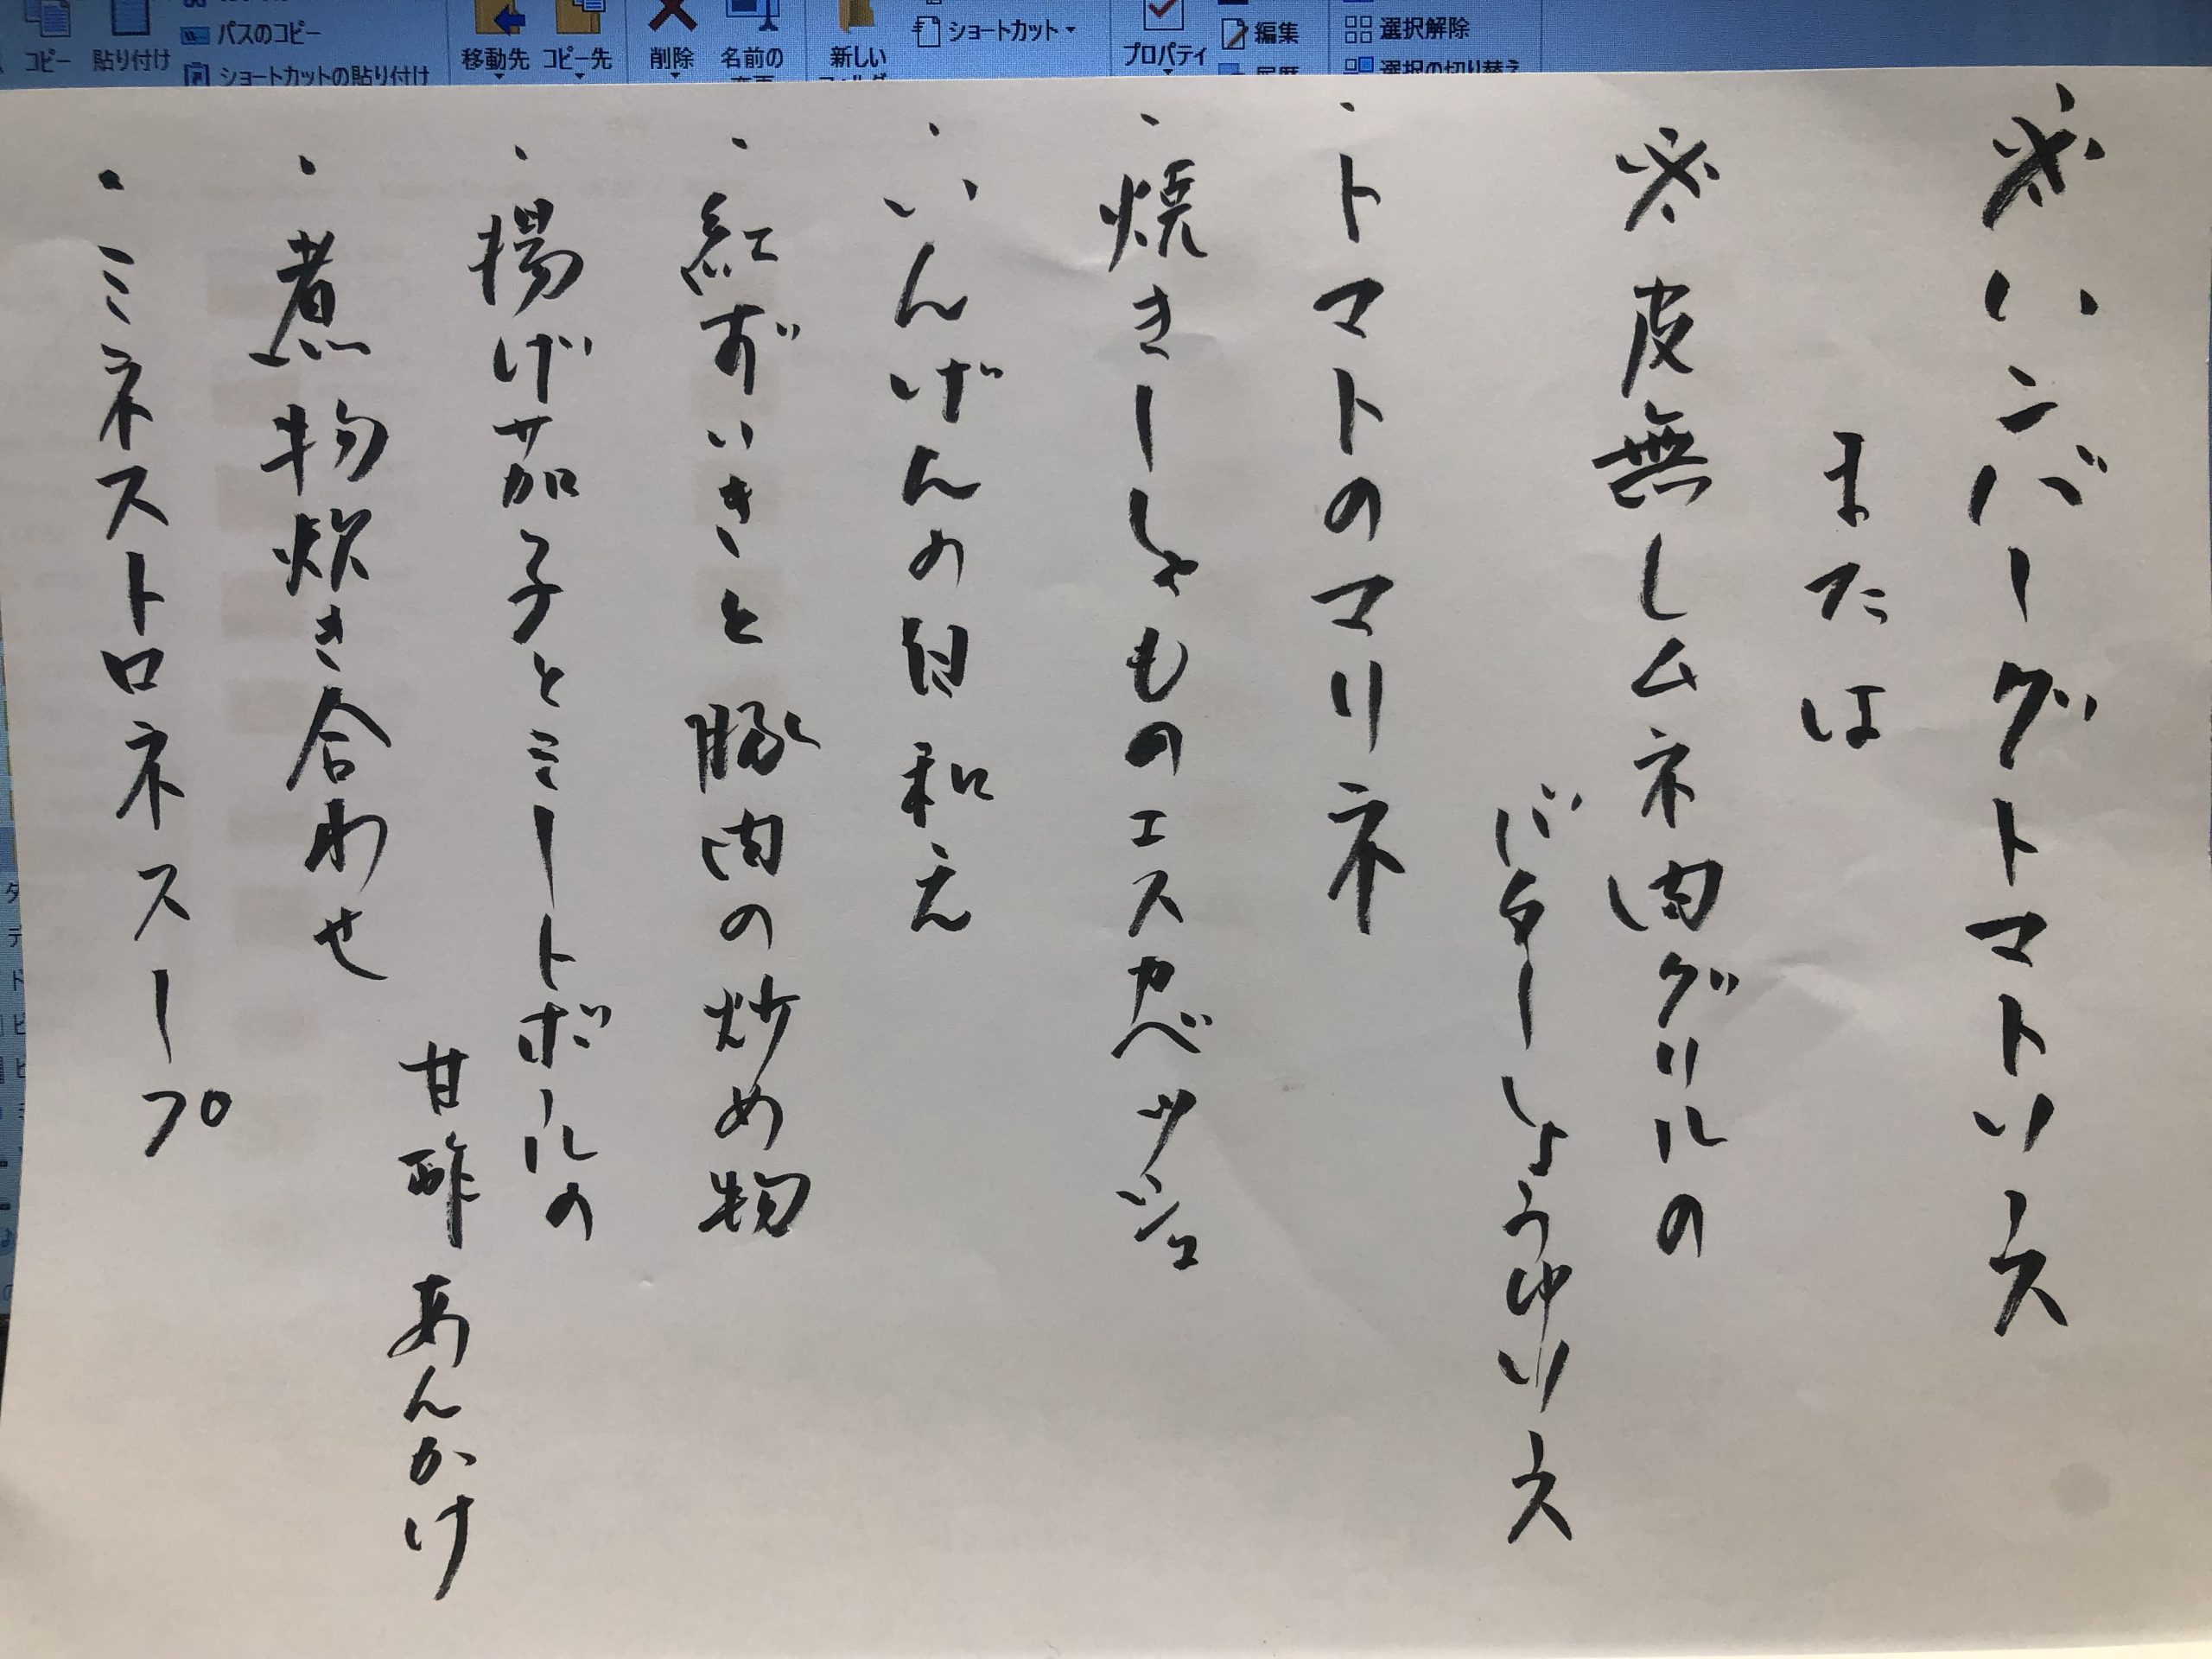 コピー
貼り付け
パスのコピー
ショートカットの貼り付け
移動先
コピー先
削除
名前の
新しい
ショートカット
プロパティ
編集
選択解除
選択の切り替え
※ハンバーグトマトソース
または
※皮無しムネ肉グリルの
バターしょうゆソース
・トマトのマリネ
・焼きししゃものエスカベッシュ
・いんげんの白和え
・紅ずいきと豚肉の炒め物
・揚げ茄子とミートボールの
甘酢あんかけ
・煮物炊き合わせ
・ミネストロネスープ